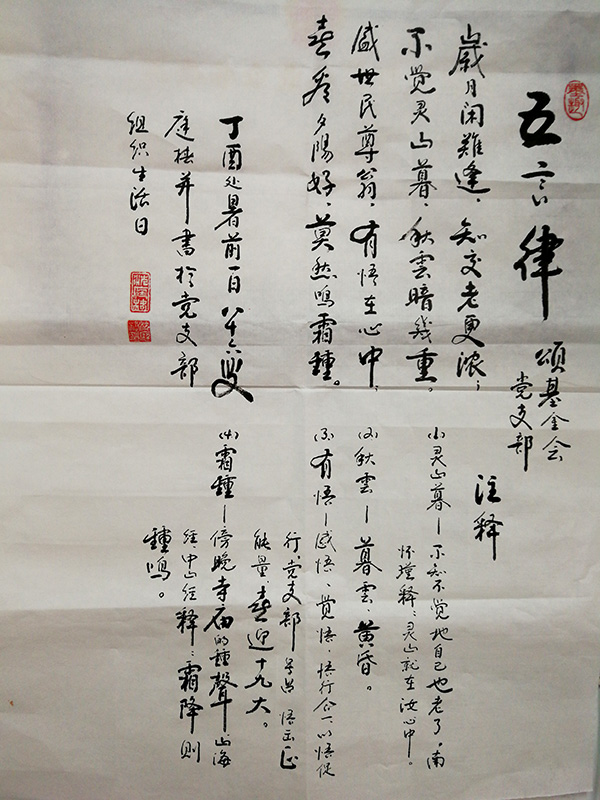 五言律
颂基金会
党支部
歲月闲難逢，知交老更浓；
不觉灵山暮，秋雲暗幾重。
盛世民尊翁，有悟在心中，
喜看夕陽好，莫愁鸣霜鍾。
丁酉处暑前一日 八十六叟
庭桂并書於党支部
组织生活日
注释
(1)灵山暮—不知不觉地自己也老了，南
怀瑾释：灵山就在汝心中。
(2)秋雲—暮雲、黄昏。
(3)有悟—感悟、觉悟，悟行合一，以悟促
行，党支部 悟出正
能量，喜迎十九大。
(4)霜鍾—傍晚寺庙的鍾聲，山海
经中山经释：霜降则
鍾鸣。